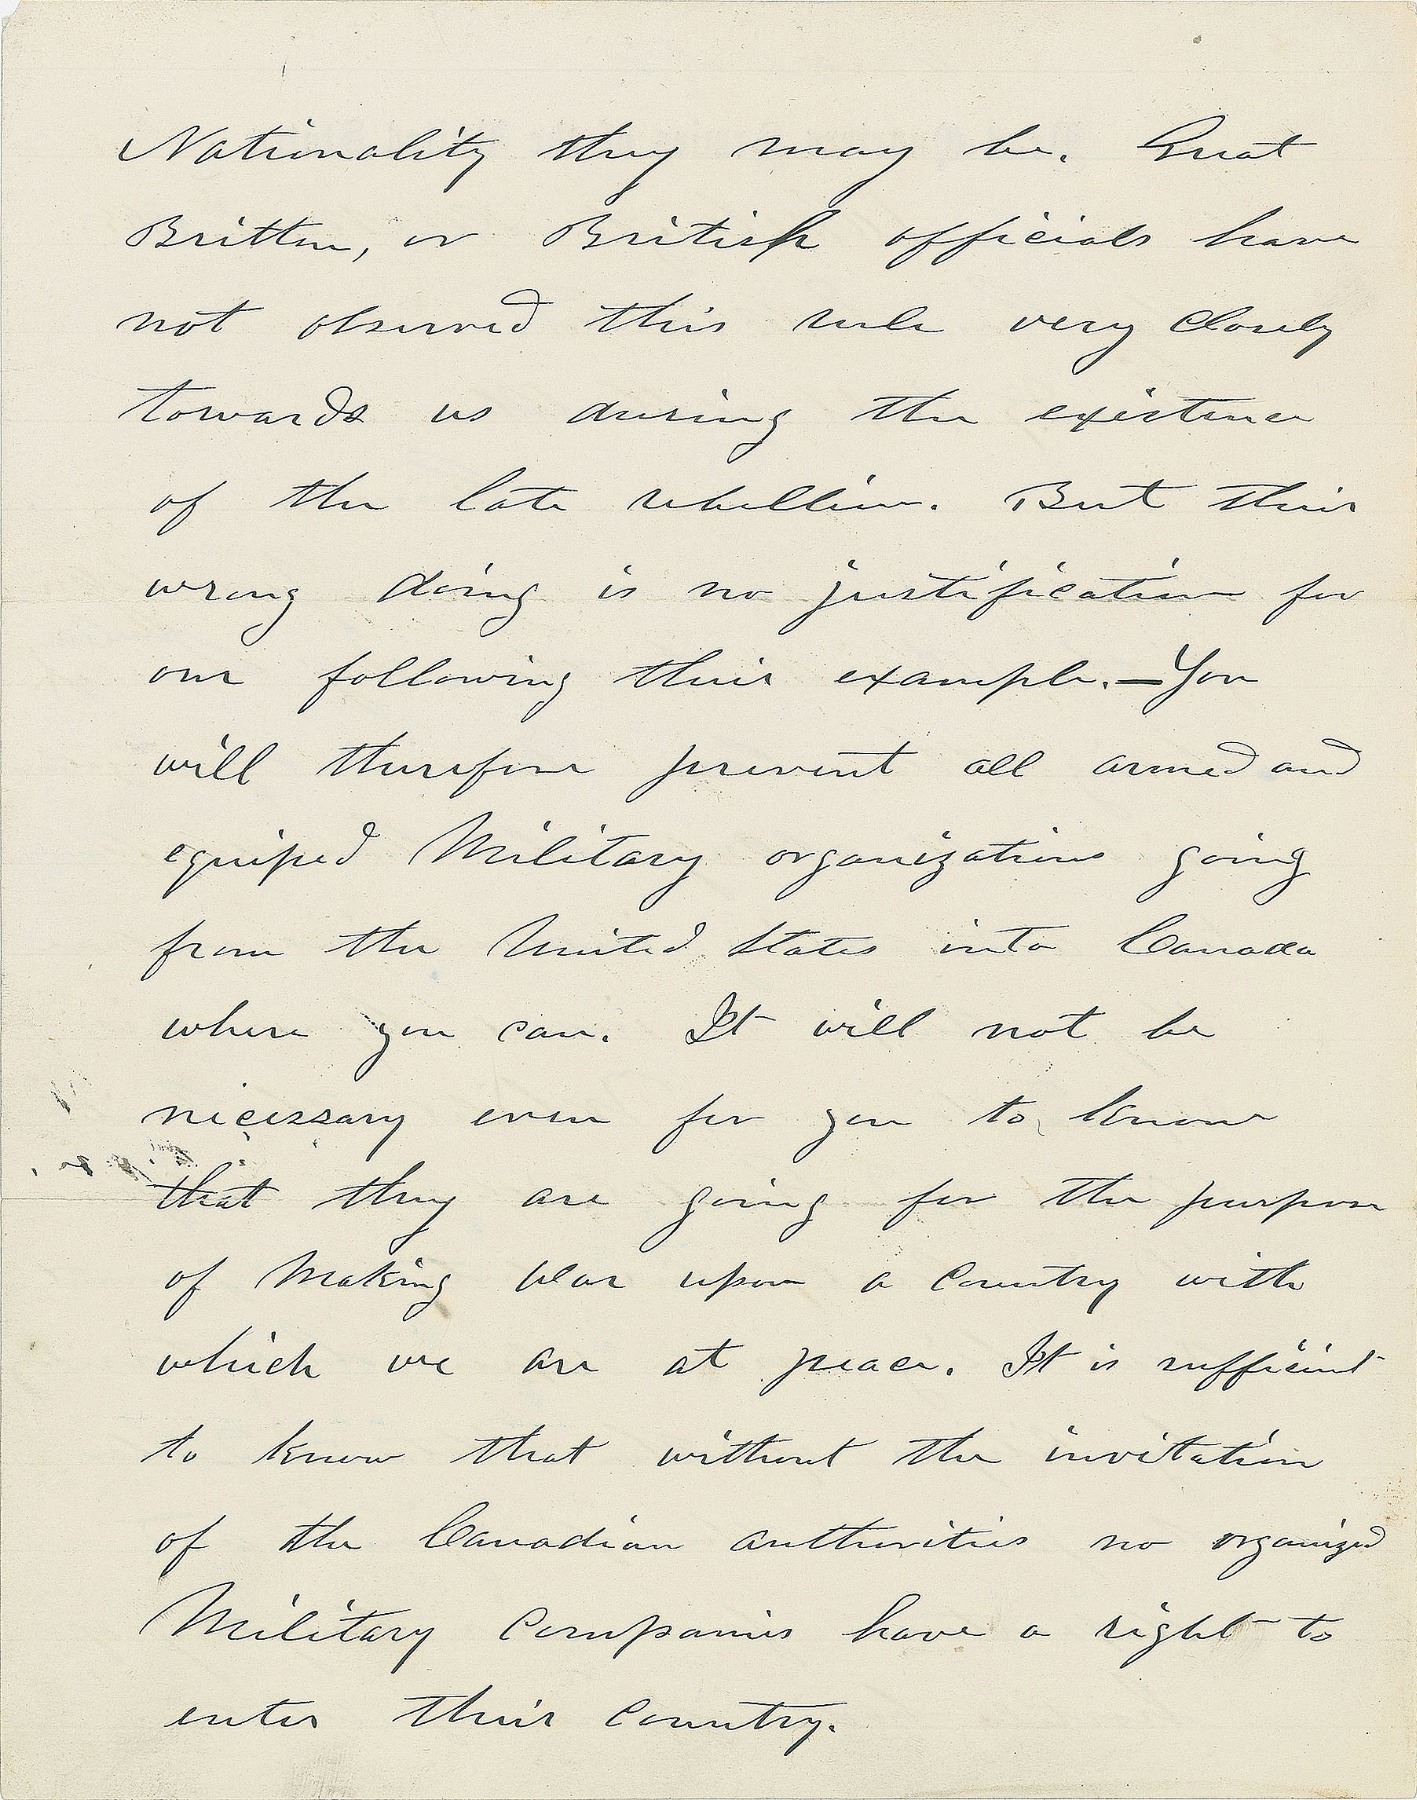 Nationality they may be. Great
Brittan, or British officials have
not observed this rule very closely
towards us during the existence
of the late rebellion. But their
wrong doing is no justification for
our following their example.—You
will therefore prevent all armed and
equiped Military organizations going
from the United States into Canada
where you can. It will not be
nicessary even for you to know
that they are going for the purpose
of Making War upon a Country with
which we are at peace. It is sufficient
to know that without the invitation
of the Canadian authorities no organized
Military Companies have a right to
enter their Country.